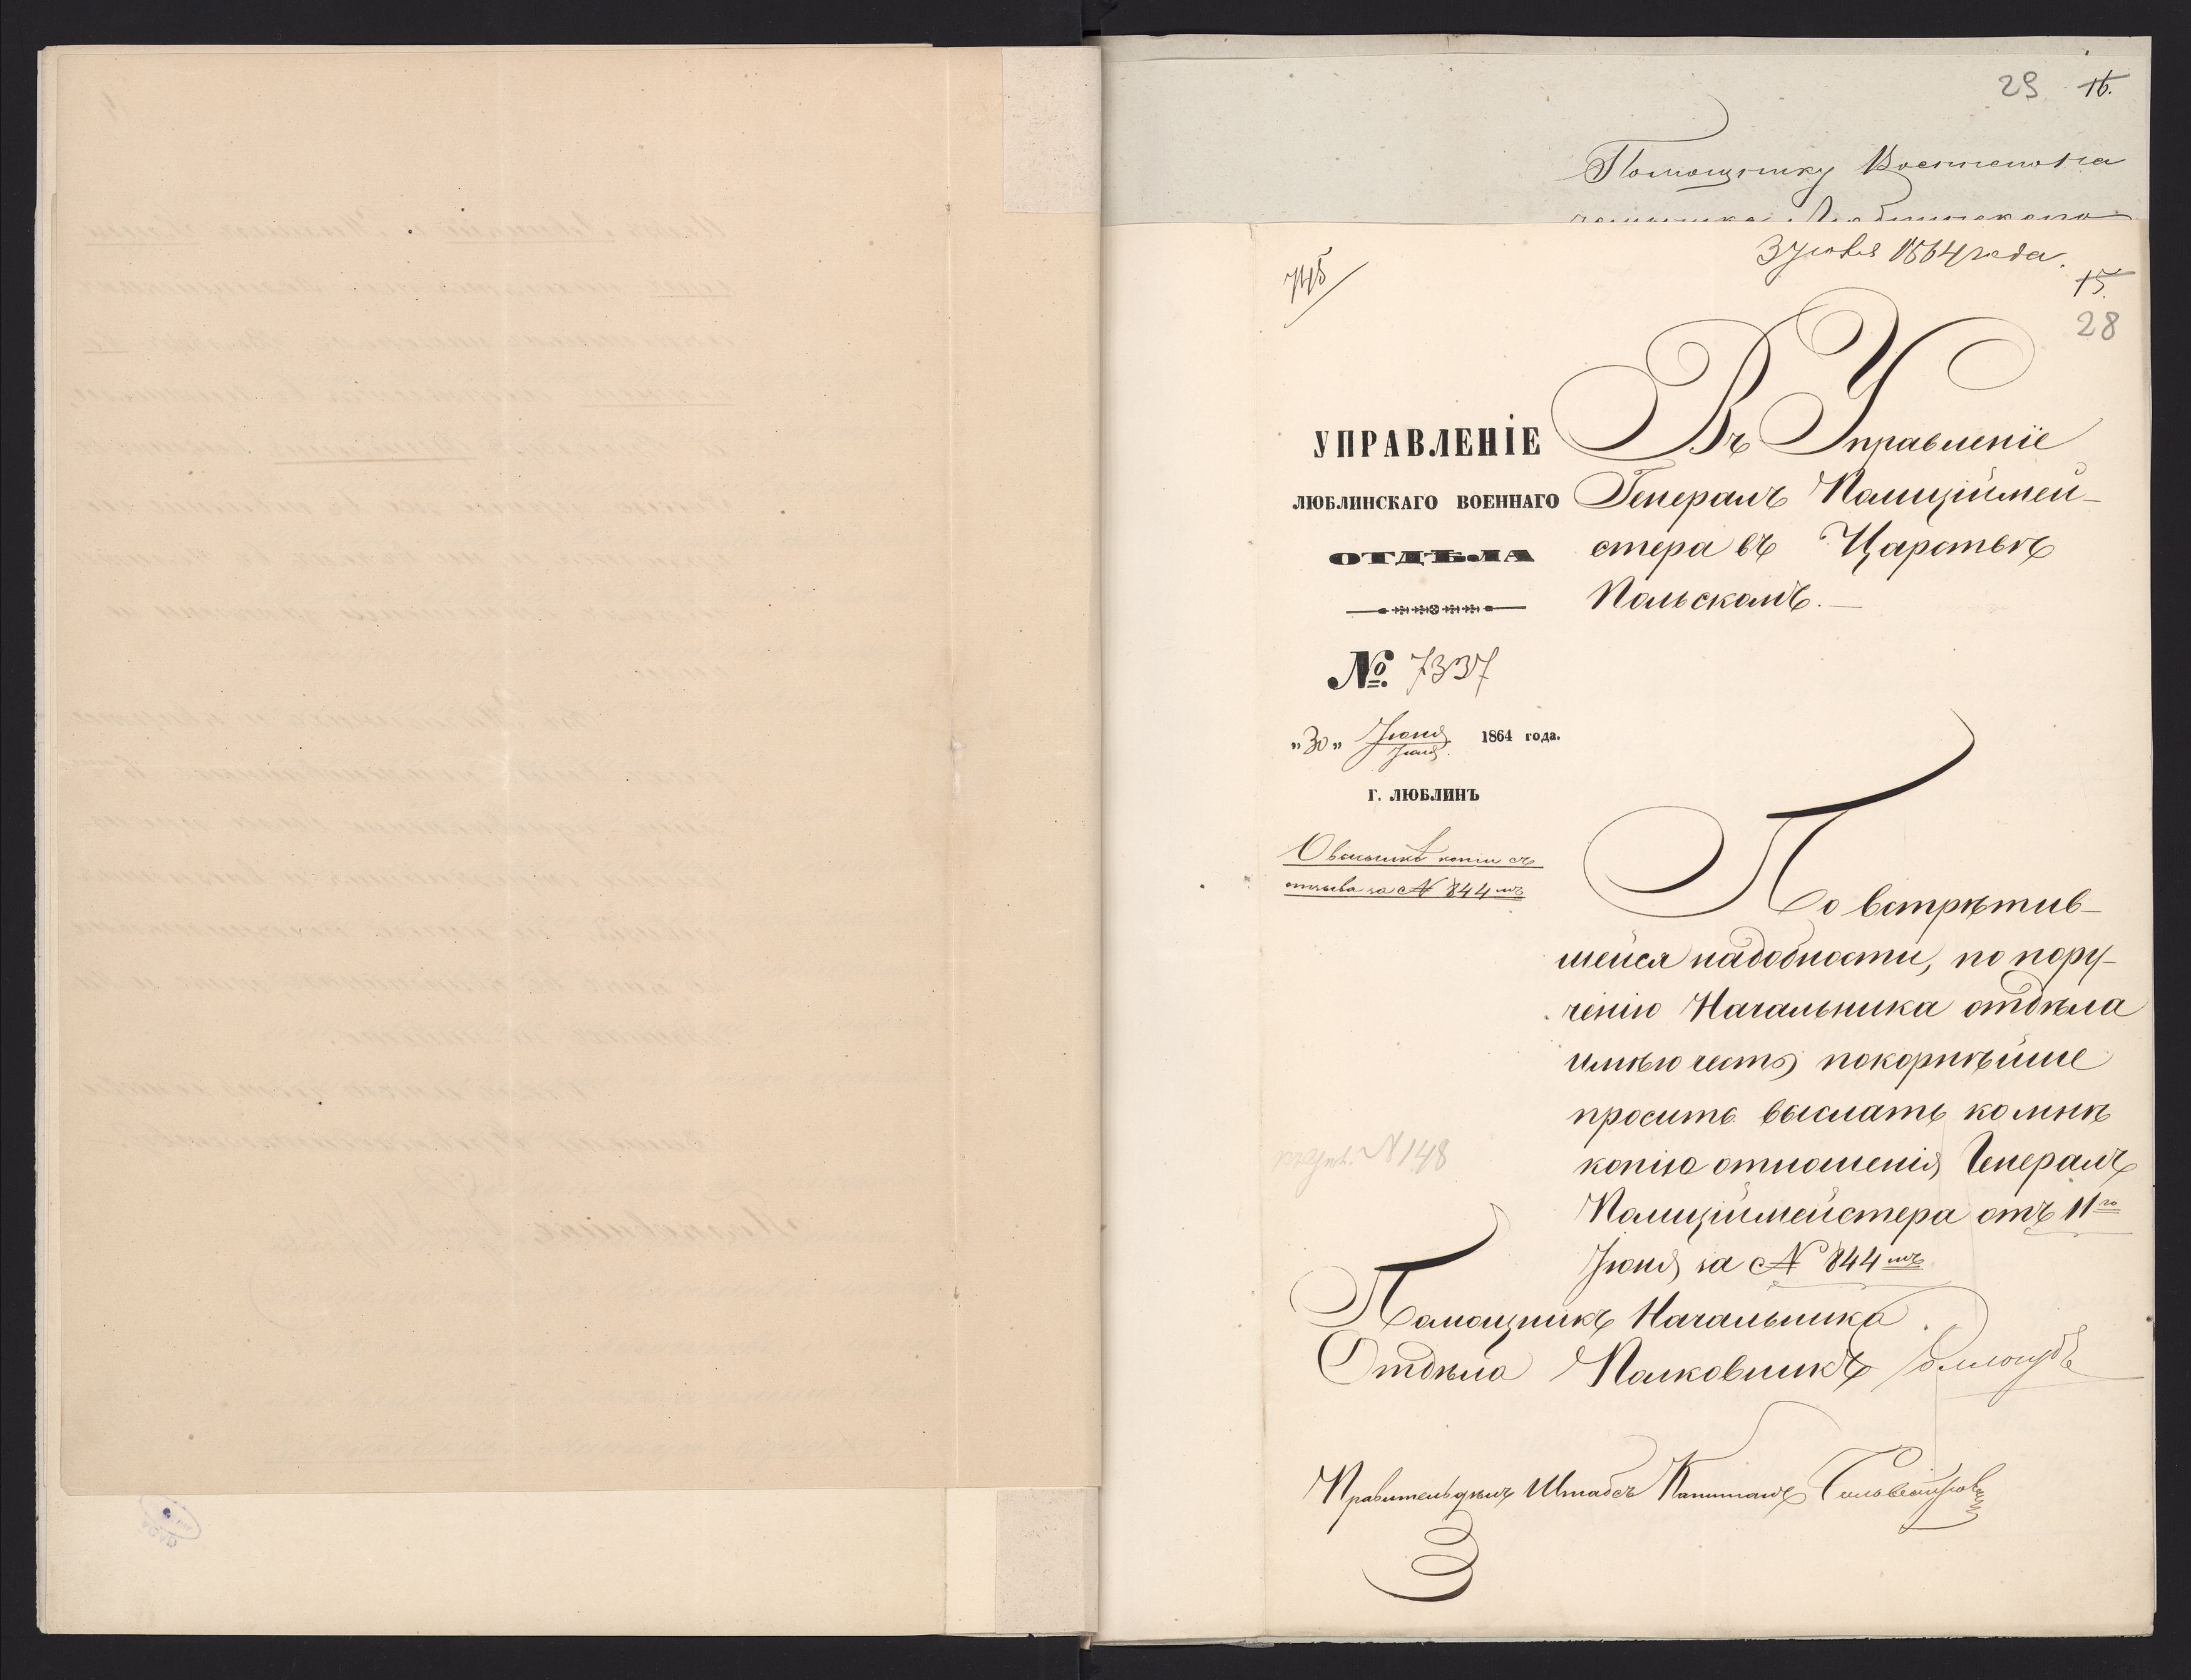 29 16.
Помощнику Военнаго На
чальника Люблинскаго
3 Іюля 1864 года.
15.
28
УПРАВЛЕНІЕ
ЛЮБЛИНСКАГО ВОЕННАГО
ОТДѢЛА
№ 7337
„30„ Іюня
Іюля 1864 года.
Г. ЛЮБЛИНЪ
О высылкѣ копіи съ
отзыва за № 844мъ
Въ Управленіе
Генералъ Полиціймей-
стера въ Царствѣ
Польскомъ.
По встрѣтив-
шейся надобности, по пору-
ченію Начальника отдѣла
имѣю честь покорнѣйше
просить выслать ко мнѣ
копію отношенія Генералъ
Полиціймейстера отъ 11го
Іюня за № 844мъ
№ 148
Помощникъ Начальника
Отдѣла Полковникъ
Правитель дѣлъ Штабсъ Капитанъ